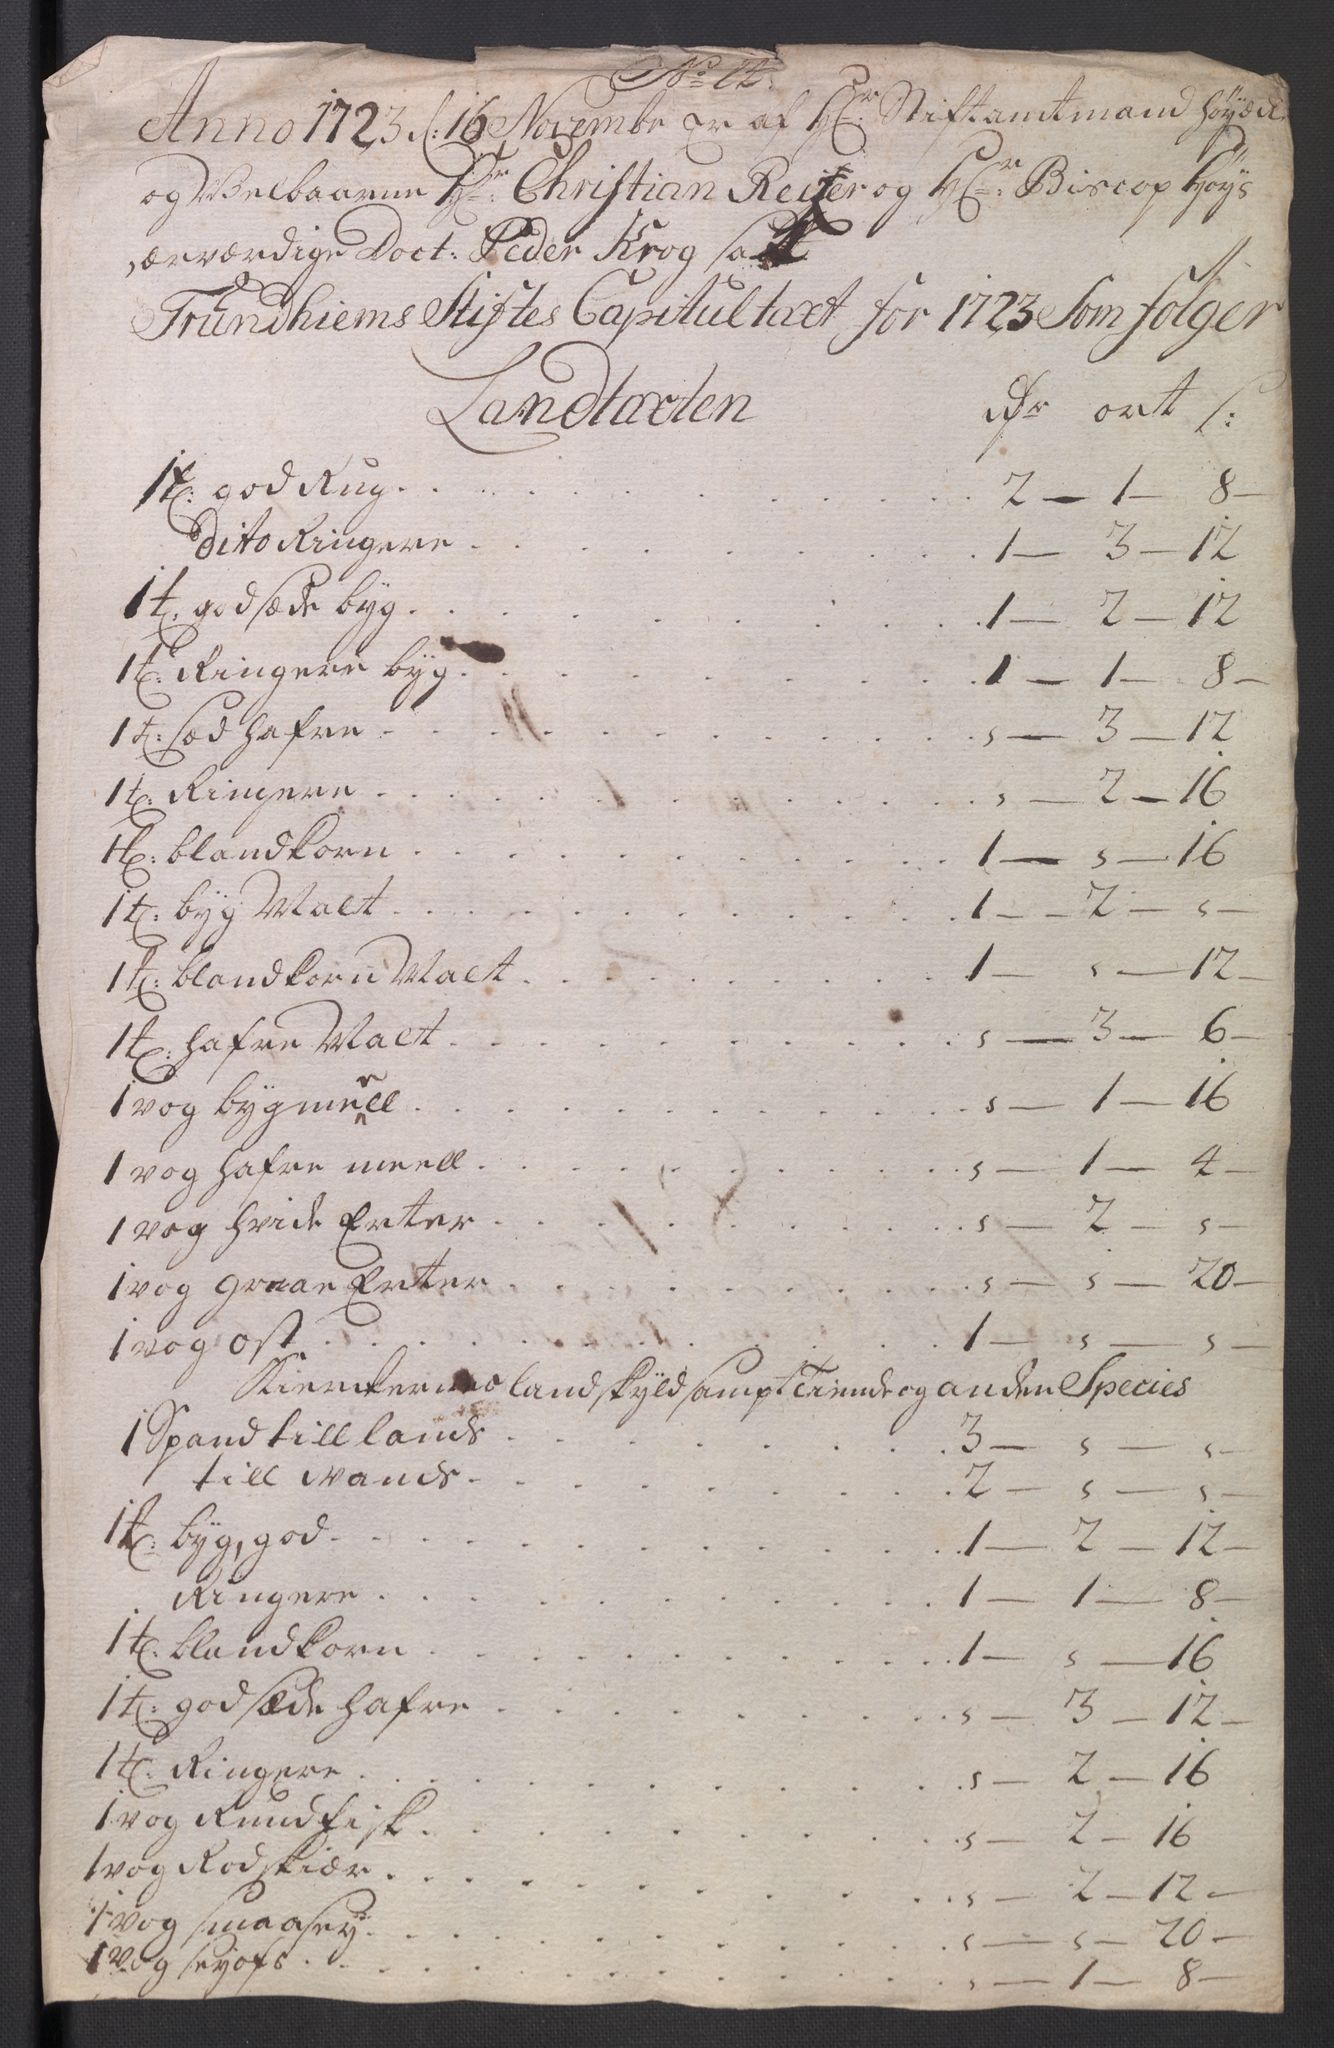 No: 12.
Anno 1723 d: 16 Novembr er af Hr: Stiftamtmand Höÿædle
og Velbaarne Hr: Christian Reitzer og Hr: Biscop Höÿs
ærværdige Doct: Peder Krog satt
Trundhiems Stiftes Capitul taxt for 1723 Som følger
Landtaxten Rdr ort s:
1 t: god Rug 2 - 1 - 8 -
dito Ringere 1 - 3 - 12
1 t: god sæde byg 1 - 2 - 12
1 t: Ringere bÿg 1 - 1 - 8 -
1 t: sæd hafre s - 3 - 12
1 t: Ringere s - 2 - 16
1 t: blandkorn 1 - s - 16
1 t: bÿg Malt 1 - 2 - s -
1 t: blandkorn Malt 1 - s - 12 -
1 t: hafre Malt s - 3 - 6 -
1 vog bÿgmeell s - 1 - 16
1 vog hafre meell s - 1 - 4 -
1 vog hvide Erter s - 2 - s -
1 vog graae Erter s - s - 20 -
1 vog ost 1 - s - s -
Kierckernes landskÿld sampt Tiende og anden Species
1 Spand till lands 3 - s - s -
till vands 2 - s - s -
1 t: bÿg, god 1 - 2 - 12 -
Ringere 1 - 1 - 8 -
1 t: blandkorn 1 - s - 16
1 t: god sæde hafre s - 3 - 12 -
1 t: Ringere s - 2 - 16
1 vog Rundfisk s - 2 - 16
1 vog Rodskiær s - 2 - 12 -
1 vog smaaseÿ s - s - 20 -
1 vog seÿofs s - 1 - 8 -